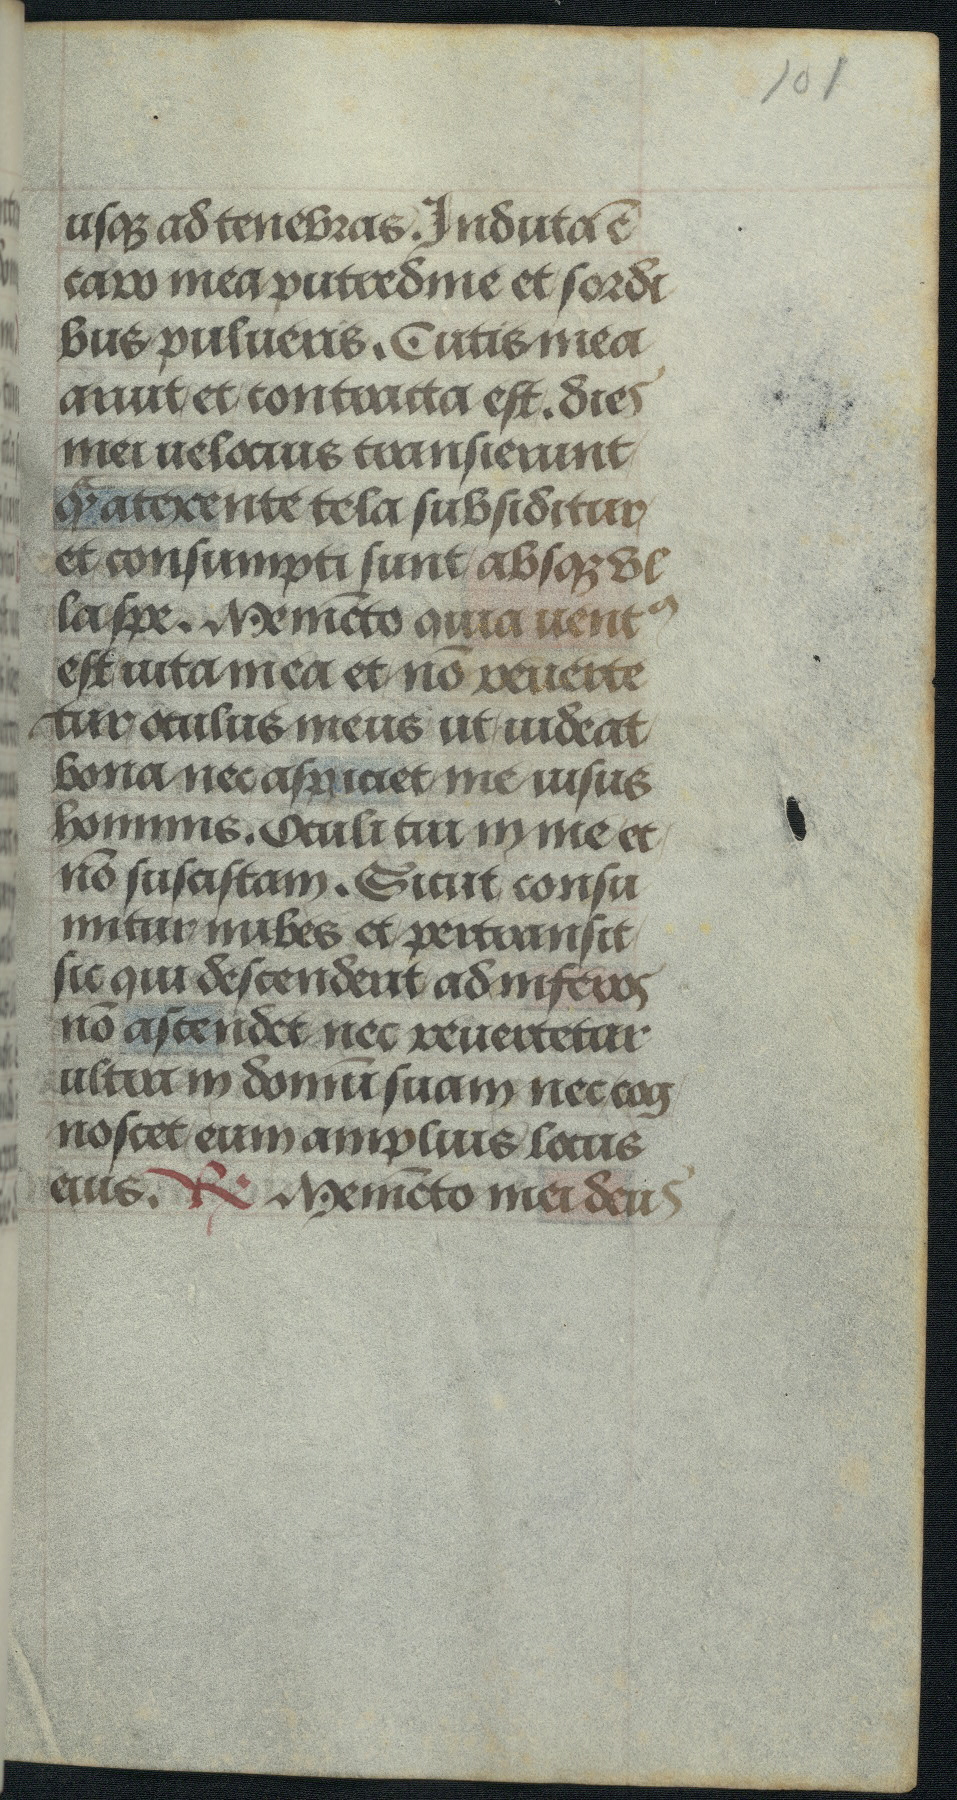 101
usqꝫ ad tenebras. Induta ē
caro mea putredīne et sordi
bus pulueris. Cutis mea
aruit et contracta est. dies
mei uelocius transierunt
q̄ a texente tela subsiditur
et consumpti sunt absqꝫ vl
la spe. Memēto quia uentꝰ
est uita mea et nō reuerte
tur oculus meus ut uideat
bona nec aspiciet me uisus
hominis. Oculi tui in me et
nō subsistam. Sicut consu
mitur nubes et pertransit
sic qui descenderit ad inferos
nō ascendet nec reuertetur
ultra in domū suam nec cog
noscet eum amplius locus
eius. ℟ Memēto mei deus